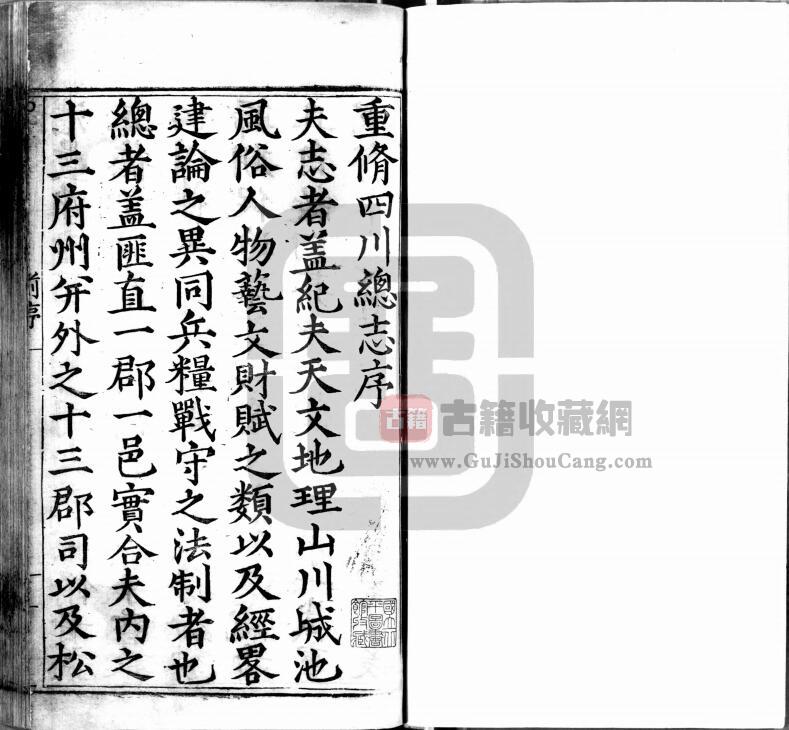 重脩四川總志序
夫志者葢紀夫天文地理山川城池
風俗人物藝文財賦之類以及經畧
建論之異同兵糧戰守之法制者也
總者葢匪直一郡一邑實合夫內之
十三府州并外之十三郡司以及松
前序
國立北
平圖書
館收藏
古籍 古籍收藏網
www.GuJiShouCang.com